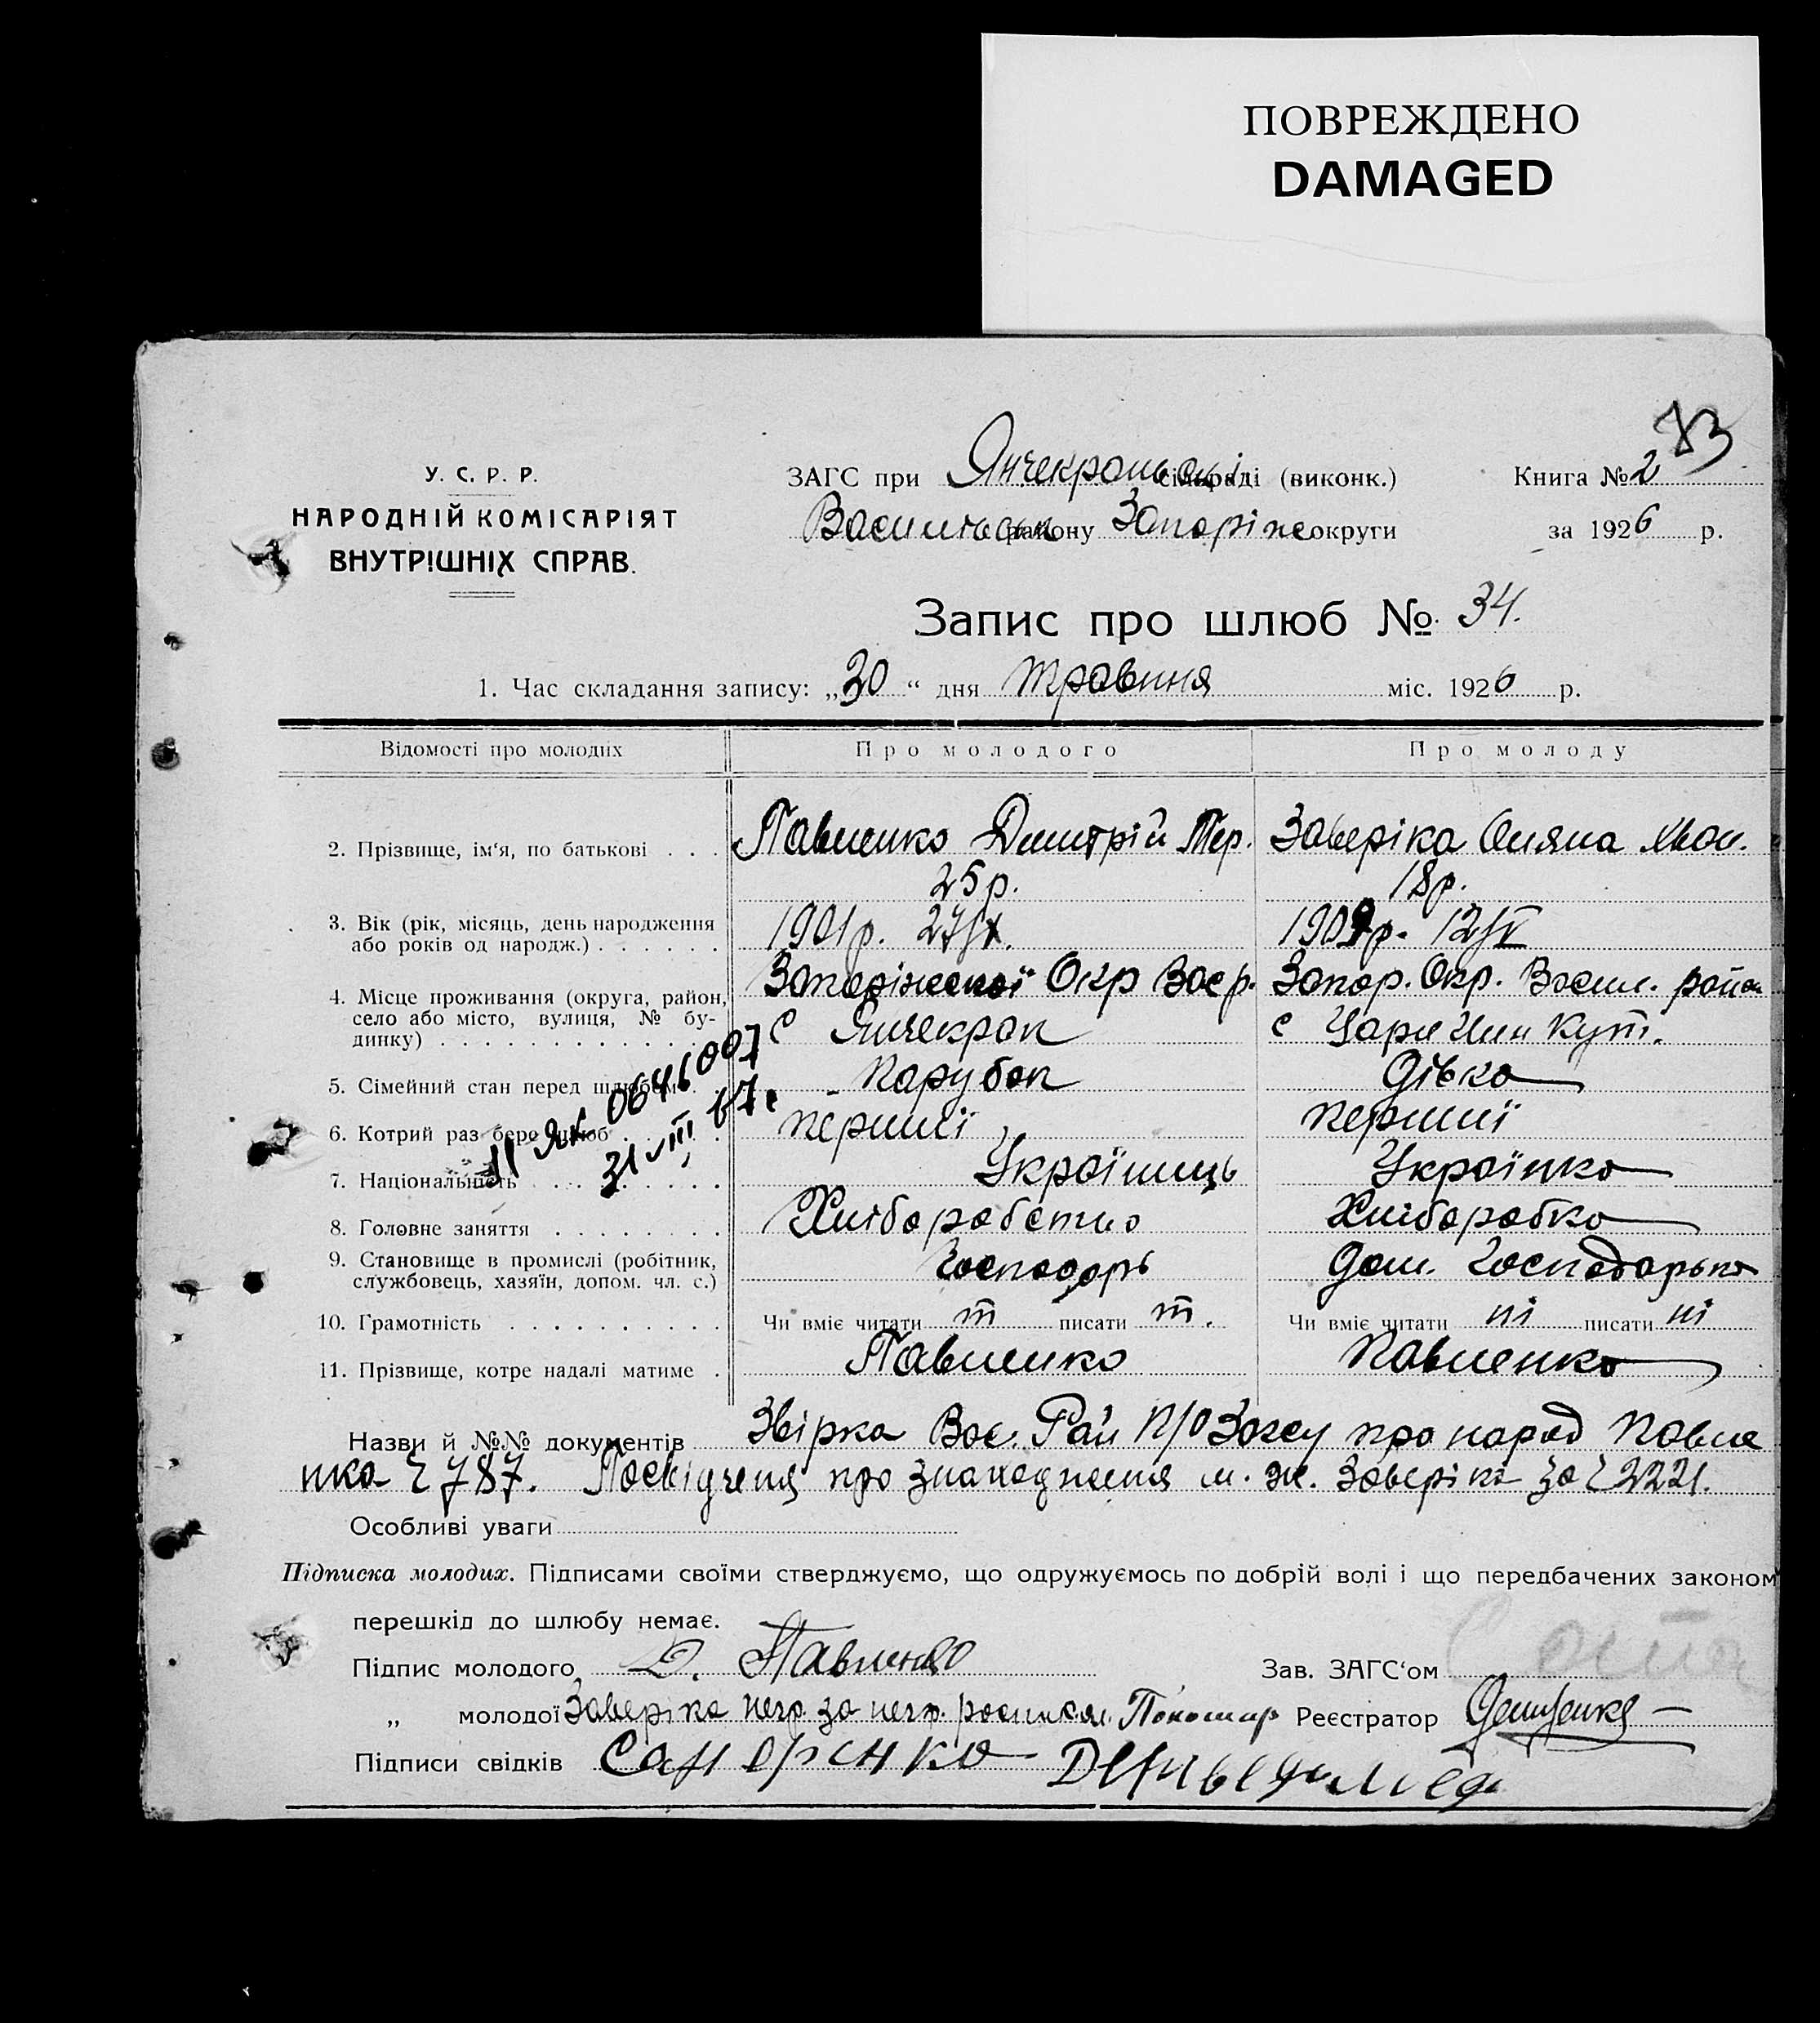 ПОВРЕЖДЕНО
DAMAGED
83
У. С. Р. Р.
НАРОДНІЙ КОМІСАРІЯТ
ВНУТРІШНІХ СПРАВ.
ЗАГС при Янчекрапській сільраді (виконк.) Книга № 2
Васильевськ району Запоріж округи за 1926 р.
Запис про шлюб № 34.
1. Час складання запису: „30“ дня травння міс. 1926 р.
Відомості про молодніх Про молодого Про молоду
2. Прізвище, ім‘я, по батькові . . . Павленко Дмитрій Тер. Заверіка Оляна Іван.
25 р. 18 р.
3. Вік (рік, місяць, день народження 1901 р. 27/ІХ. 1909 р. 12/ІV
або років од народж.) . . . . . .
4. Місце проживання (округа, район, Запоріжської Окр Вас р. Запор. Окр. Васил. район
село або місто, вулиця, № бу- с Янчекрак с Царицин Кут.
динку) . . . . . . . . . . . .
5. Сімейний стан перед шлюбом . Парубок Дівка
6. Котрий раз бере шлюб . . . . перший перший
7. Національність . . . . . . . . Українець Українка
8. Головне заняття . . . . . . . . Хліборобство Хліборобка
9. Становище в промислі (робітник, Господарь Дом. Господарька
службовець, хазяїн, допом. чл. с.)
10. Грамотність . . . . . . . . . . Чи вміє читати т писати т. Чи вміє читати ні писати ні
11. Прізвище, котре надалі матиме . Павленко Павленко
ІІ ЯК 0646007
31 VIII 67 г
Назви й №№ документів Звірка Вас. Рай П/О Загсу про народ Павле
нка Ч 787. Посвідченя про знаходження м. ж. Заверікі за Ч 2221.
Особливі уваги
Підписка молодих. Підписами своїми стверджуємо, що одружуємось по добрій волі і що передбачених законом
перешкід до шлюбу немає.
Підпис молодого Д. Павленко Зав. ЗАГС‘ом
„ молодої Заверіка негр. за негр. росписал. Реєстратор
Підписи свідків